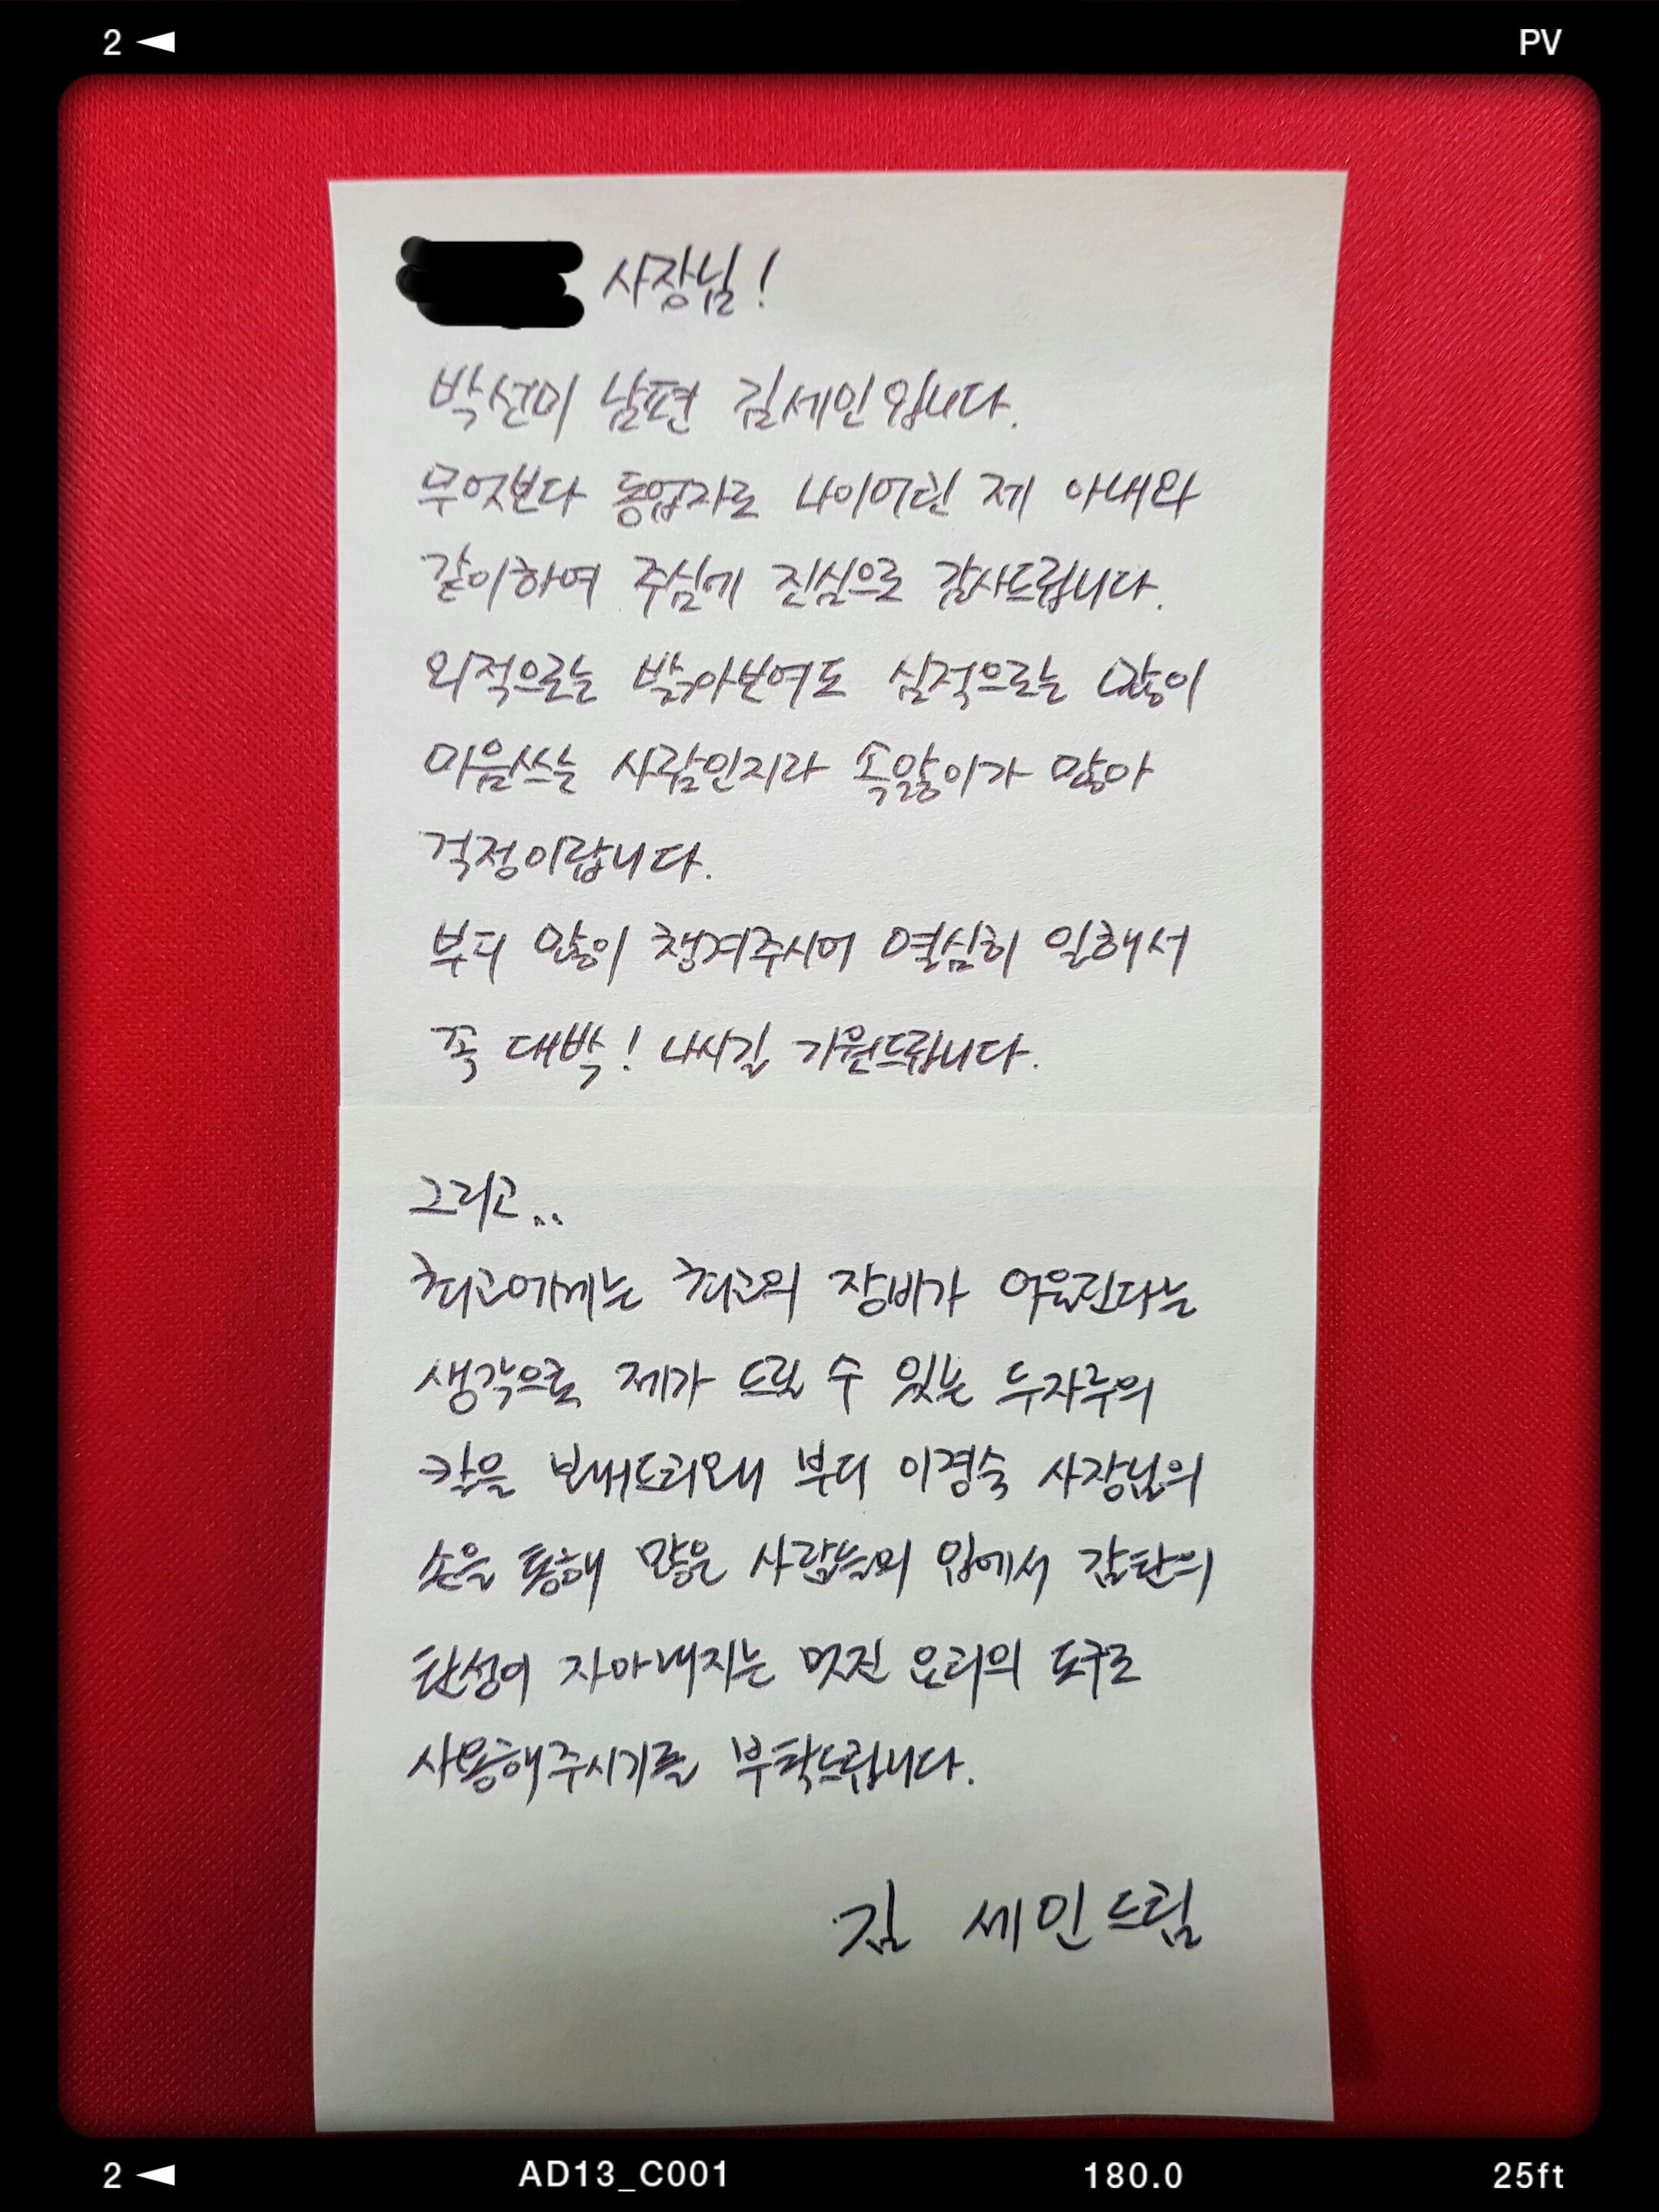 2 ◀ PV
사장님!
박선미 남편 김세인입니다.
무엇보다 동업자로 나이어린 제 아내와
같이하여 주심에 진심으로 감사드립니다.
외적으로는 밝아보여도 심적으로는 많이
마음쓰는 사람인지라 속앓이가 많아
걱정이랍니다.
부디 많이 챙겨주시어 열심히 일해서
꼭 대박! 나시길 기원드립니다.
그리고..
최고에게는 최고의 장비가 어울린다는
생각으로 제가 드릴 수 있는 두자루의
칼을 보내드리오니 부디 이경숙 사장님의
손을 통해 많은 사람들의 입에서 감탄의
탄성이 자아내지는 멋진 요리의 도구로
사용해주시기를 부탁드립니다.
김 세인드림
2 ◀ AD13_C001 180.0 25ft